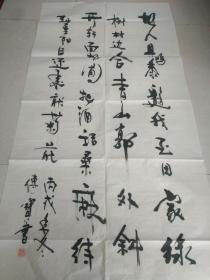 故人具鸡黍邀我至田家绿
树村边合青山郭外斜
开轩面场圃把酒话桑麻待
到重阳日还来就菊花
丙戌